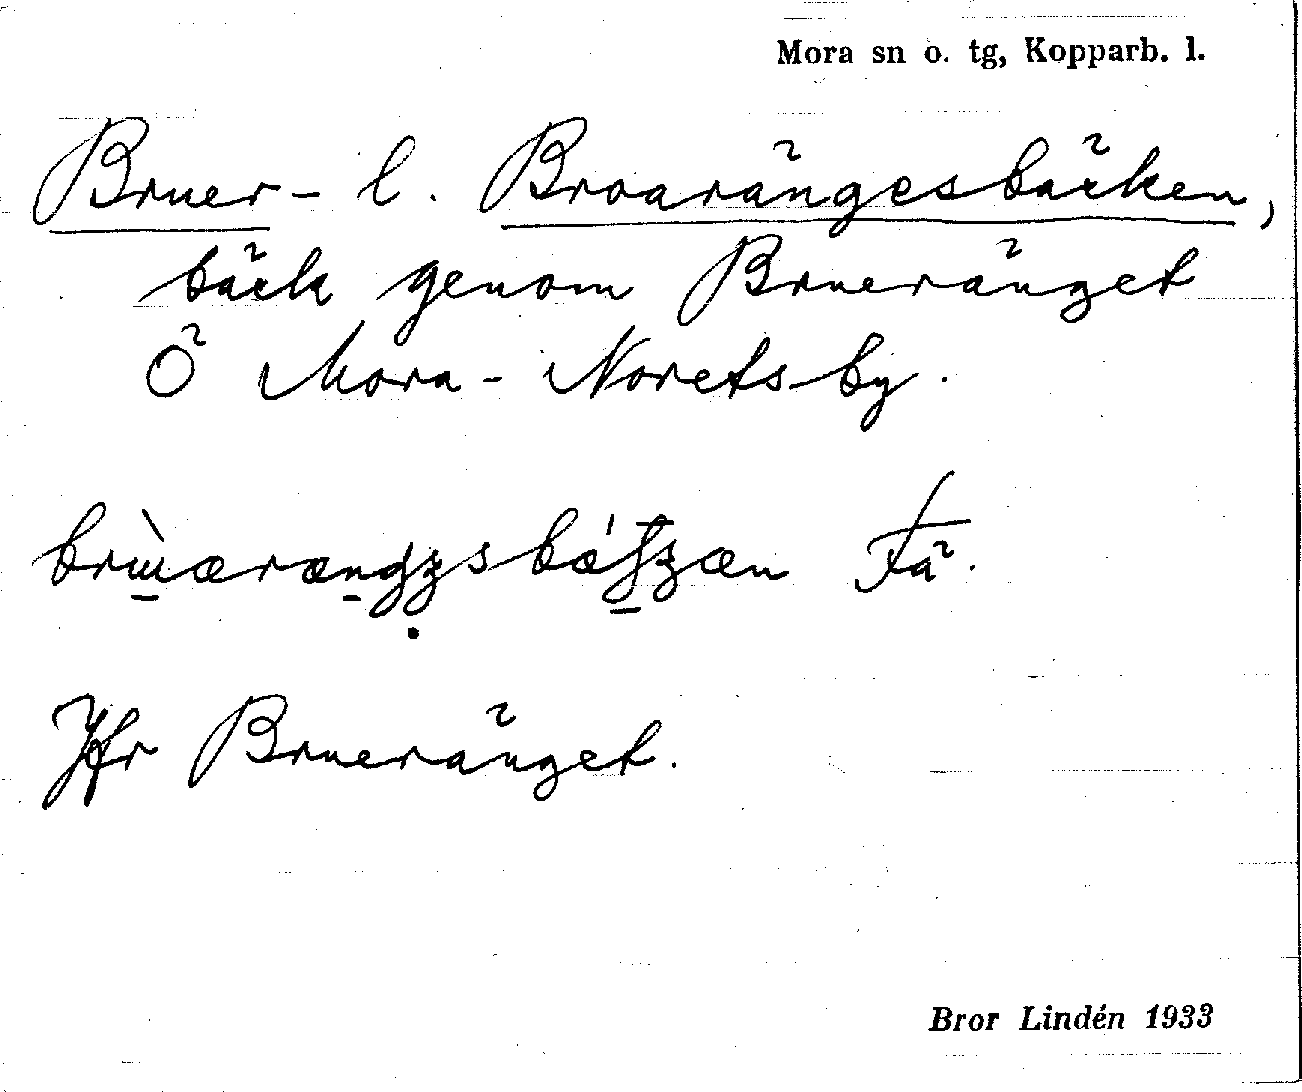 Mora sn o. tg, Kopparb. l.
Bruer- l. Broarängesbäcken,
bäck genom Brueränget
Ö Mora-Norets by.
Fä.
Jfr Brueränget.
Bror Lindén 1933